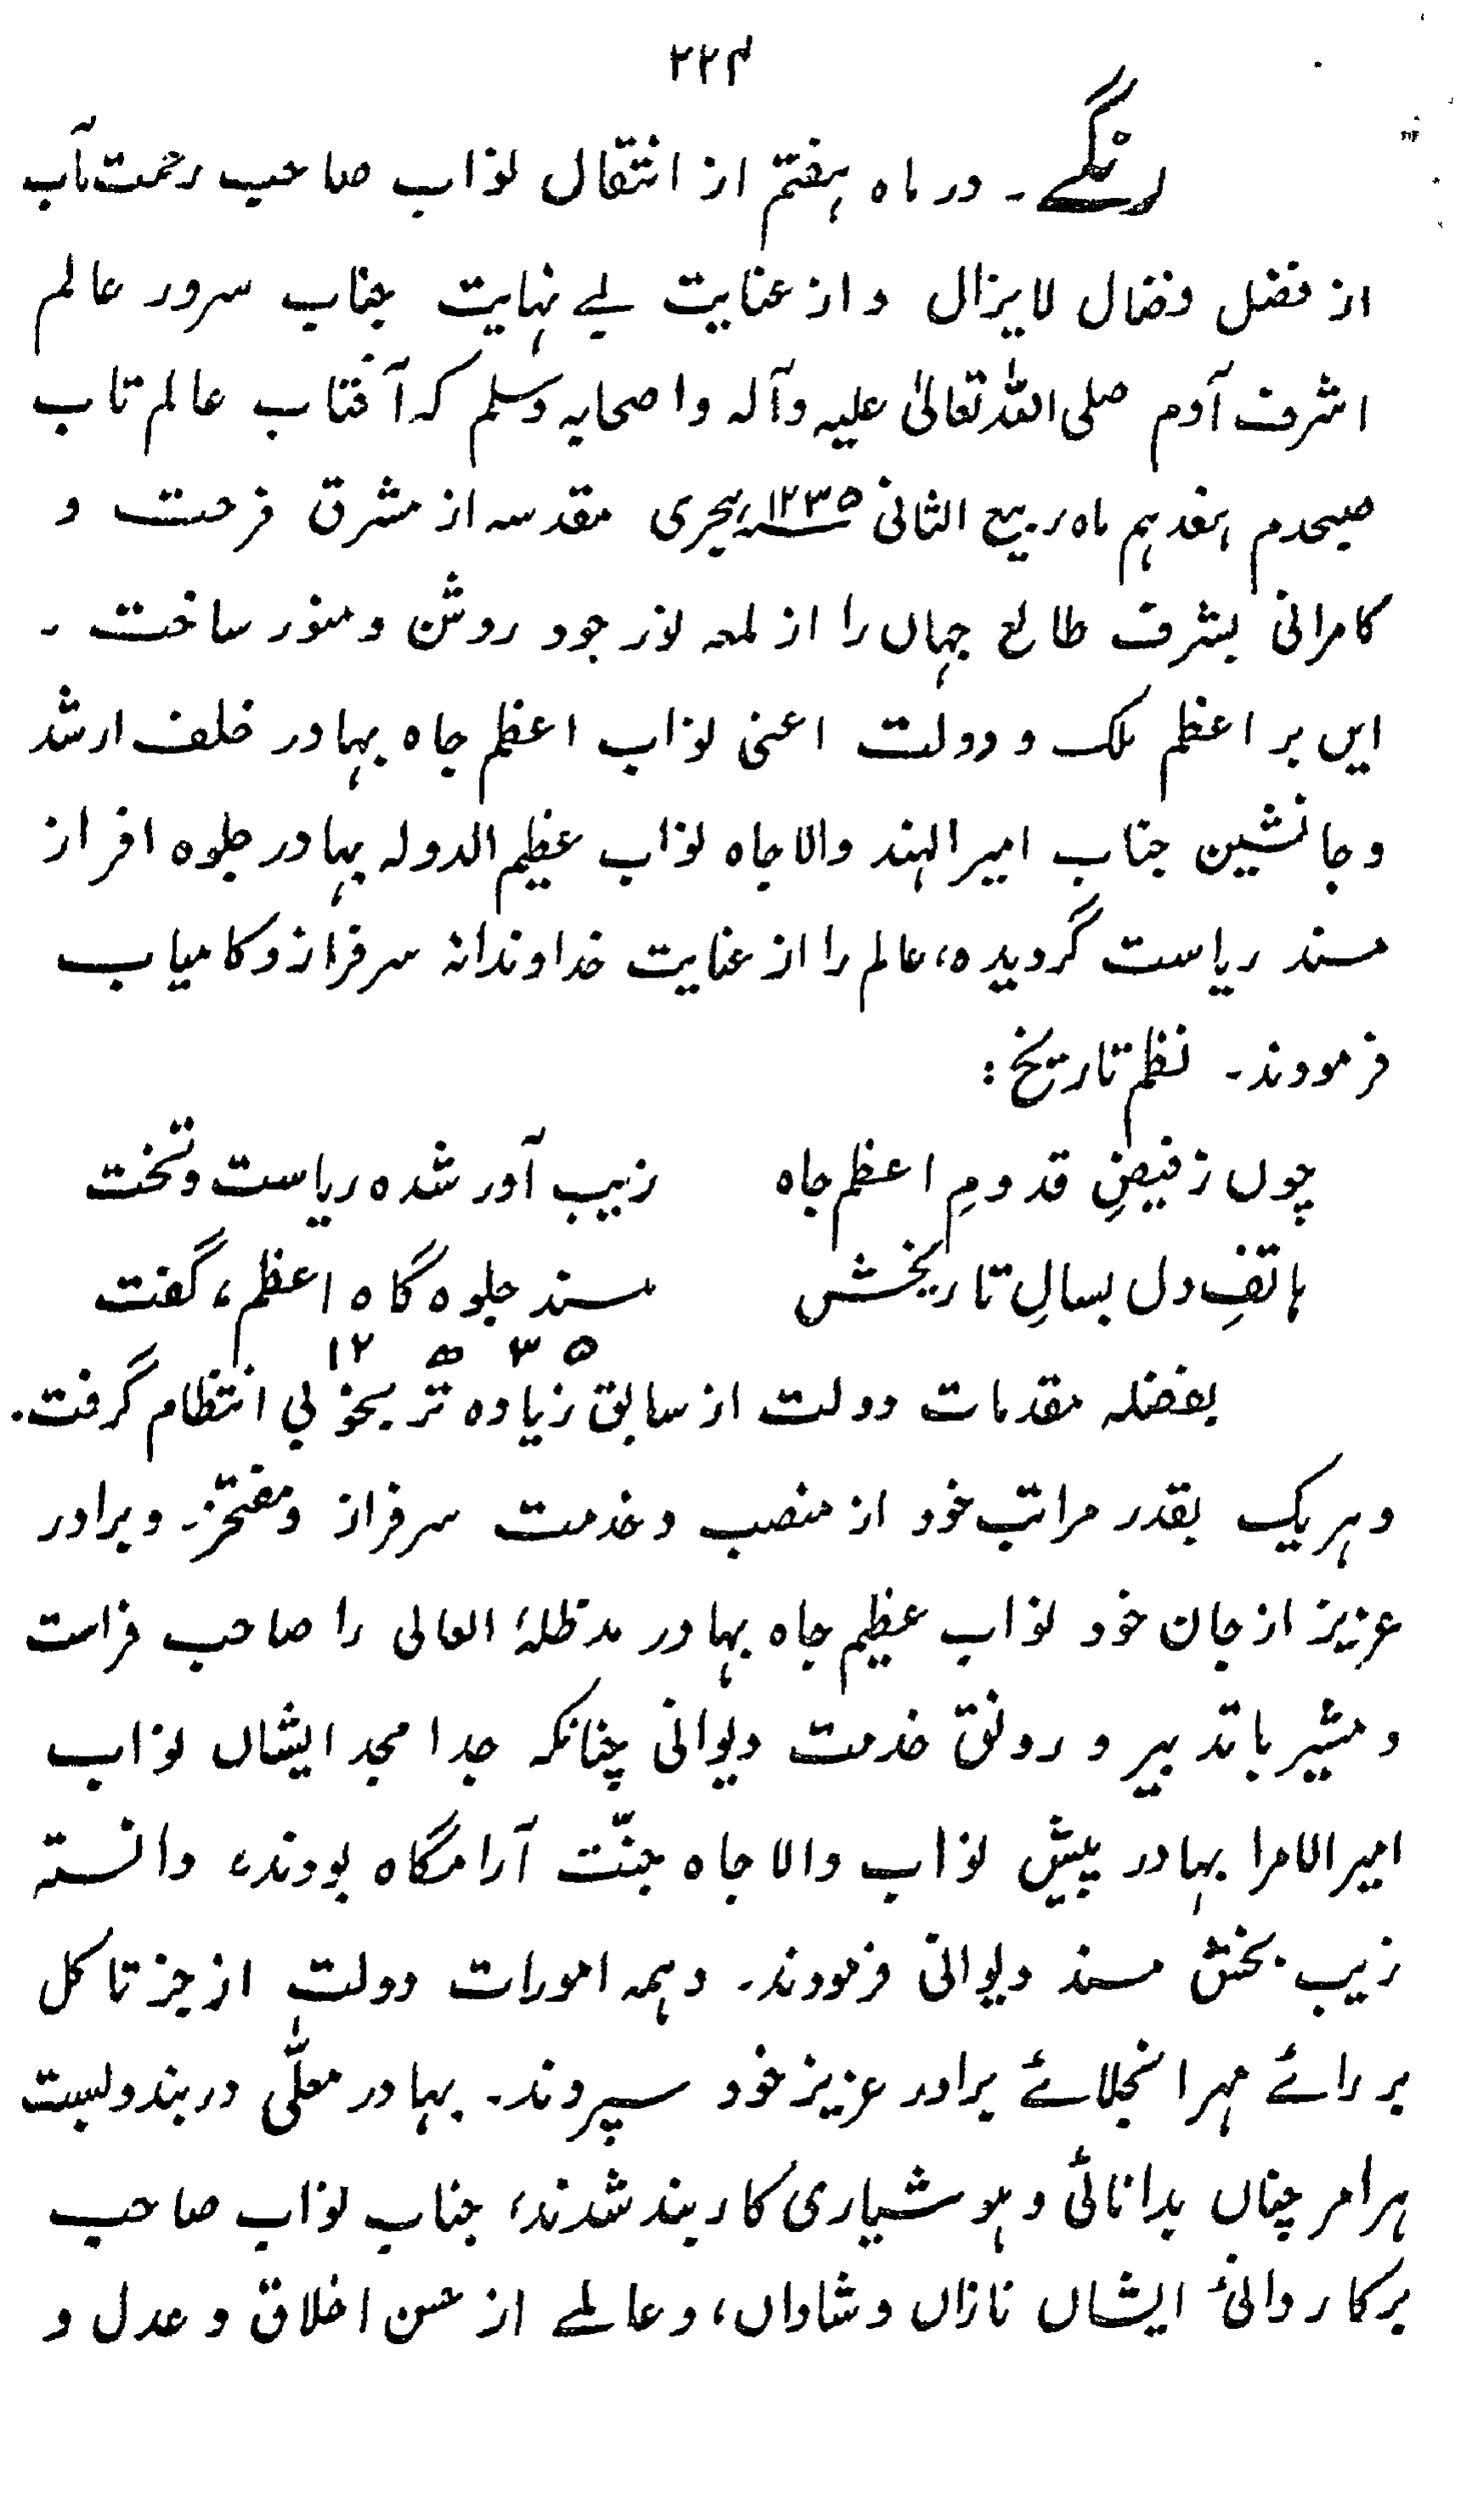 ۲۲۴
رنگے ۔ در ماہ ہفتم از انتقال نواب صاحب رحمت مآب
از فضل فضال لا یزال و از عنایت بے نہایت جناب سرور عالم
اشرف آدم صلی اللہ تعالیٰ علیہ وآلہ واصحابہ وسلم کہ آفتاب عالم تاب
صبحدم ہفدہم ماہ ربیع الثانی ۱۲۳۵ ہجری مقدسہ از مشرق فرحت و
کامرانی بشرف طالع جہاں را از لمعہ نور جود روشن و منور ساخت ۔
ایں بر اعظم ملک و دولت اعنی نواب اعظم جاہ بہادر خلف ارشد
و جانشین جناب امیر الہند والا جاہ نواب عظیم الدولہ بہادر جلوہ افراز
مسند ریاست گردیدہ، عالم را از عنایت خداوندانہ سرفراز و کامیاب
فرمودند۔ نظم تاریخ :
چوں ز فیضِ قدومِ اعظم جاہ زیب آور شدہ ریاست و تخت
ہاتفِ دل بسالِ تاریخش مسند جلوہ گاہ اعظم، گفت
۱۲ ھ ۳ ۵
بفضلہ مقدمات دولت از سابق زیادہ تر بخوبی انتظام گرفت.
و ہر یک بقدر مراتب خود از منصب و خدمت سرفراز و مفتخر۔ و برادر
عزیز از جان خود نواب عظیم جاہ بہادر مدظلہٗ العالی را صاحب فراست
و مشیر با تدبیر و رونق خدمت دیوانی چنانکہ جد امجد ایشاں نواب
امیر الامرا بہادر پیش نواب والا جاہ جنّت آرامگاہ بودند، دانستہ
زیب بخش مسند دیوانی فرمودند۔ و ہمہ امورات دولت از جز تا کل
بر رائے مہر انجلائے برادر عزیز خود سپردند۔ بہادر معلّٰی در بندوبست
ہر امر چناں بدانائی و ہوشیاری کار بند شدند، جناب نواب صاحب
بر کاردانیٔ ایشاں نازاں و شاداں، و عالمے از حسن اخلاق و عدل و